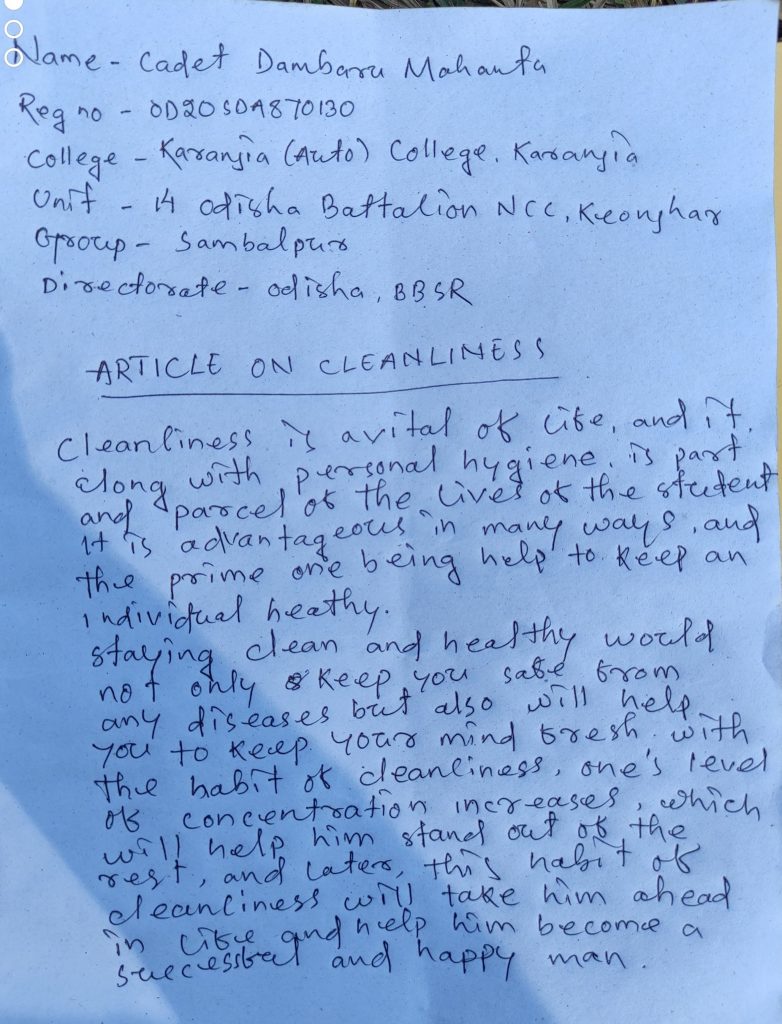 Name - Cadet Dambaru Mahanta
Reg no - OD20SDA870130
College - Karanjia (Auto) College, Karanjia
Unit - 14 odisha Battalion NCC, Keonjhar
Group - Sambalpur
Directorate - odisha, BBSR
ARTICLE ON CLEANLINESS
Cleanliness is avital of life, and it,
along with personal hygiene, is part
and parcel of the lives of the student
It is advantageous in many ways, and
the prime one being help to keep an
individual heathy.
staying clean and healthy would
not only keep you safe from
any diseases but also will help
you to keep your mind fresh. with
the habit of cleanliness, one's level
of concentration increases, which
will help him stand out of the
rest, and later, this habit of
cleanliness will take him ahead
in life and help him become a
successful and happy man.